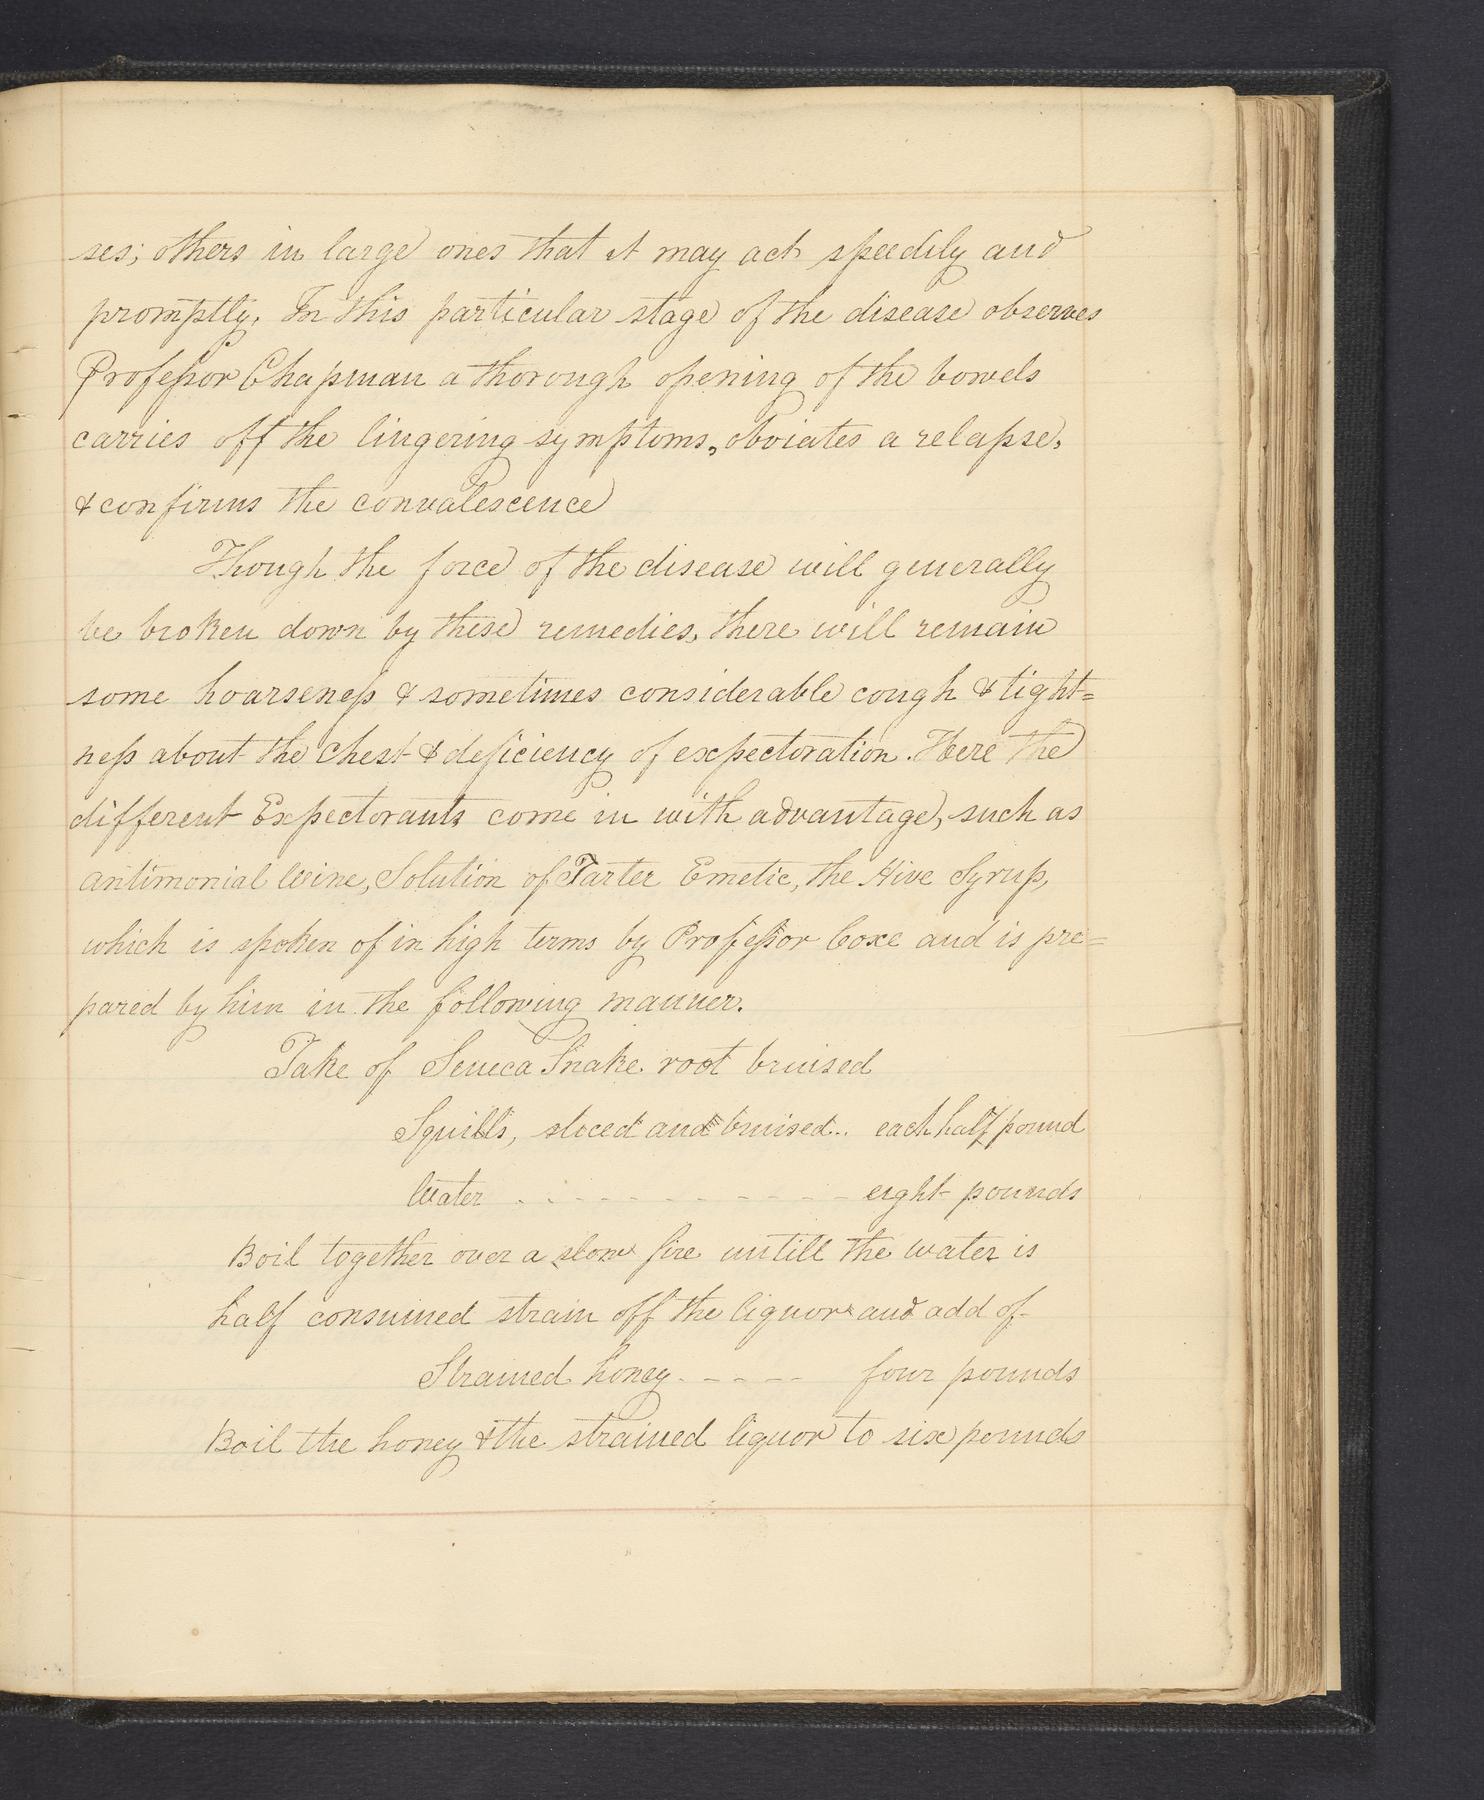 ses; others in large ones that it may act speedily and
promptly. In this particular stage of the disease observes
Professor Chapman a thorough opening of the bowels
carries off the lingering symptoms, obviates a relapse,
& confirms the convalescence
Though the force of the disease will generally
be broken down by these remedies, there will remain
some hoarseness & sometimes considerable cough & tight=
ness about the chest & deficiency of expectoration. Here the
different Expectorants come in with advantage, such as
antimonial Wine, Solution of Tarter Emetic, the Hive Syrup,
which is spoken of in high terms by Professor Coxe and is pre=
pared by him in the following manner.
Take of Seneca Snake root bruised
Squills, sliced and bruised.. each half pound
Water . . - - - - - - - - - - - eight pounds
Boil together over a slow fire untill the water is
half consumed strain off the liquor and add of
Strained honey. - - - - four pounds
Boil the honey & the strained liquor to six pounds